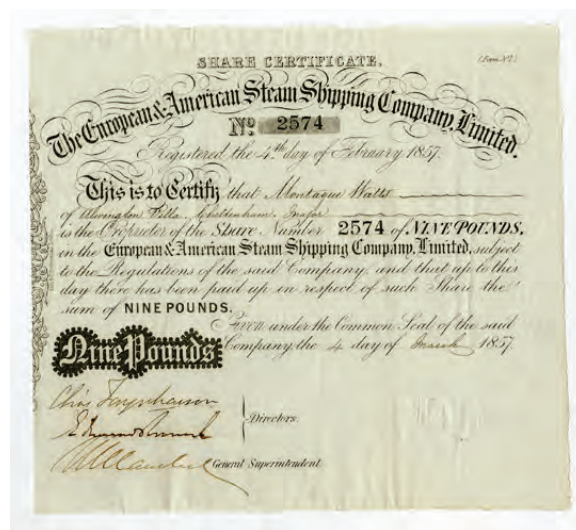 SHARE CERTIFICATE.
The European & American Steam Shipping Company, Limited.
No. 2574
Registered the 4th day of February 1857.
This is to Certify that Montague Watts
of Alvington Villa, Cheltenham,
is the Proprietor of the Share Number 2574 of NINE POUNDS,
in the European & American Steam Shipping Company, Limited, subject
to the Regulations of the said Company, and that up to this
day there has been paid up in respect of such Share the
sum of NINE POUNDS.
Given under the Common Seal of the said
Nine Pounds Company, the 4 day of March 1857.
Directors.
General Superintendent.